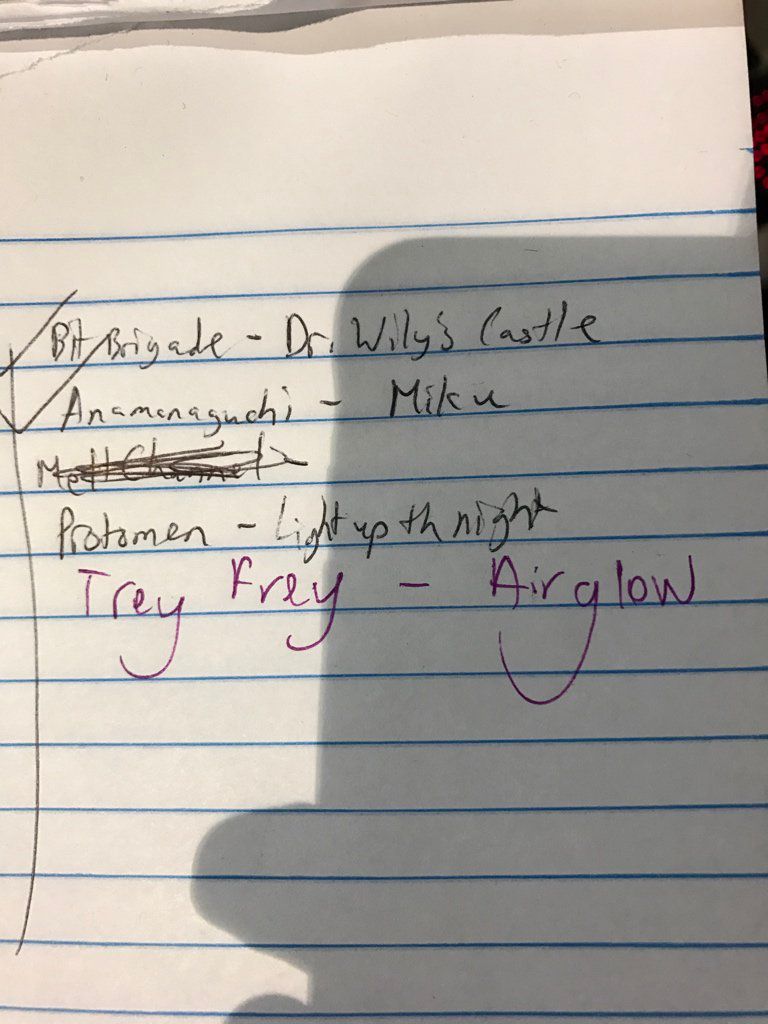 Bit Brigade - Dr. Wily's Castle
Anamanaguchi - Miku
Protomen - Light up th night
Trey Frey - Airglow